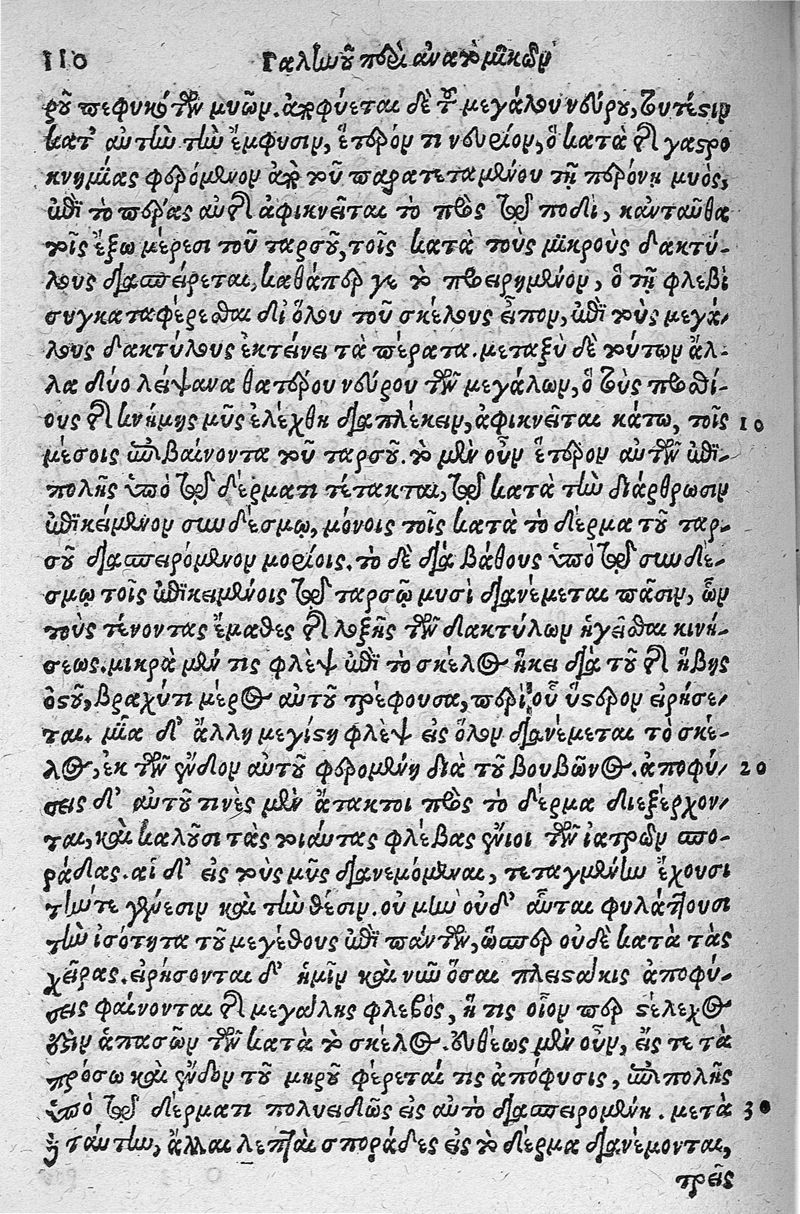 110 Γαλίωοῦ περὶ ἀνατομικῶν
ρου πεφυκὸς τῶν μυῶν. ἀποφύεται δὲ τοῦ μεγάλου νεύρου, τουτέστιν
κατ' αὐτὴν τὴν ἔμφυσιν, ἕτερόν τι νευρίον, ὃ κατὰ τῆς γαστρο
κνημίας φερόμενον ἀπὸ τοῦ παρατεταμένου τῇ περόνῃ μυὸς,
ἐπὶ τὸ πέρας αὐτῆς ἀφικνεῖται τὸ πρὸς τῷ ποδὶ, κἀνταῦθα
τοῖς ἔξω μέρεσι τοῦ ταρσοῦ, τοῖς κατὰ τοὺς μικροὺς δακτύ-
λους διασπείρεται, καθάπερ γε τὸ προειρημένον, ὃ τῇ φλεβὶ
συγκαταφέρεσθαι δι' ὅλου τοῦ σκέλους εἶπον, ἐπὶ τοὺς μεγά-
λους δακτύλους ἐκτείνει τὰ πέρατα. μεταξὺ δὲ τούτων ἄλ-
λα δύο λείψανα θατέρου νεύρου τῶν μεγάλων, ὃ τοὺς προσθί-
ους τῆς κνήμης μῦς ἐλέχθη διαπλέκειν, ἀφικνεῖται κάτω, τοῖς 10
μέσοις ἐπιβαίνοντα τοῦ ταρσοῦ. τὸ μὲν οὖν ἕτερον αὐτῶν ἐπι-
πολῆς ὑπὸ τῷ δέρματι τέτακται, τῷ κατὰ τὴν διάρθρωσιν
ἐπικείμενον συνδέσμῳ, μόνοις τοῖς κατὰ τὸ δέρμα τοῦ ταρ-
σοῦ διασπειρόμενον μορίοις. τὸ δὲ διὰ βάθους ὑπὸ τῷ συνδε-
σμῳ τοῖς ἐπικειμένοις τῷ ταρσῷ μυσὶ διανέμεται πᾶσιν, ὧν
τοὺς τένοντας ἔμαθες τῆς λοξῆς τῶν δακτύλων ἡγεῖσθαι κινή-
σεως. μικρὰ μέν τις φλὲψ ἐπὶ τὸ σκέλος ἥκει διὰ τοῦ τῆς ἥβης
ὀστοῦ, βραχύ τι μέρος αὐτοῦ τρέφουσα, περὶ οὗ ὕστερον εἰρήσε-
ται. μία δ' ἄλλη μεγίστη φλὲψ εἰς ὅλον διανέμεται τὸ σκέ-
λος, ἐκ τῶν ἔνδον αὐτοῦ φερομένη διὰ τοῦ βουβῶνος. ἀποφύ- 20
σεις δ' αὐτοῦ τινὲς μὲν ἄτακτοι πρὸς τὸ δέρμα διεξέρχον-
ται, καὶ καλοῦσι τὰς τοιαύτας φλέβας ἔνιοι τῶν ἰατρῶν σπο-
ράδας. αἱ δ' εἰς τοὺς μῦς διανεμόμεναι, τεταγμένην ἔχουσι
τήν τε γένεσιν καὶ τὴν θέσιν. οὐ μὴν οὐδ' αὗται φυλάττουσι
τὴν ἰσότητα τοῦ μεγέθους ἐπὶ πάντων, ὥσπερ οὐδὲ κατὰ τὰς
χεῖρας. εἰρήσονται δ' ἡμῖν καὶ νῦν ὅσαι πλειστάκις ἀποφύ-
σεις φαίνονται τῆς μεγάλης φλεβὸς, ἥ τις οἷον περ στέλεχός
ἐστιν ἁπασῶν τῶν κατὰ τὸ σκέλος. εὐθέως μὲν οὖν, εἴς τε τὰ
πρόσω καὶ ἔνδον τοῦ μηροῦ φέρεταί τις ἀπόφυσις, ἐπιπολῆς
ὑπὸ τῷ δέρματι πολυειδῶς εἰς αὐτὸ διασπειρομένη. μετὰ 30
δὲ ταύτην, ἄλλαι λεπταὶ σποράδες εἰς τὸ δέρμα διανέμονται,
τρεῖς